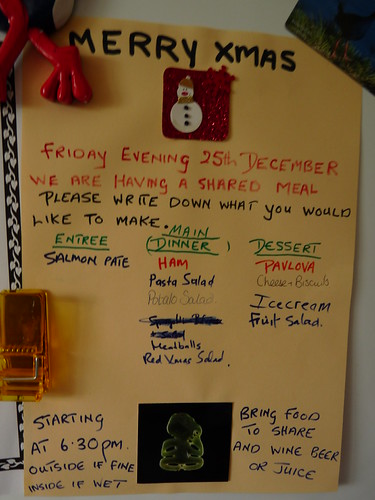 MERRY XMAS
FRIDAY EVENING 25th DECEMBER
WE ARE HAVING A SHARED MEAL
PLEASE WRITE DOWN WHAT YOU WOULD
LIKE TO MAKE.
ENTREE
SALMON PATE
MAIN
(DINNER)
HAM
Pasta Salad
Potato Salad
Meatballs
Red Xmas Salad.
DESSERT
PAVLOVA
Cheese & Biscuits
Icecream
Fruit Salad.
STARTING
AT 6:30PM.
OUTSIDE IF FINE
INSIDE IF WET
BRING FOOD
TO SHARE
AND WINE BEER
OR JUICE